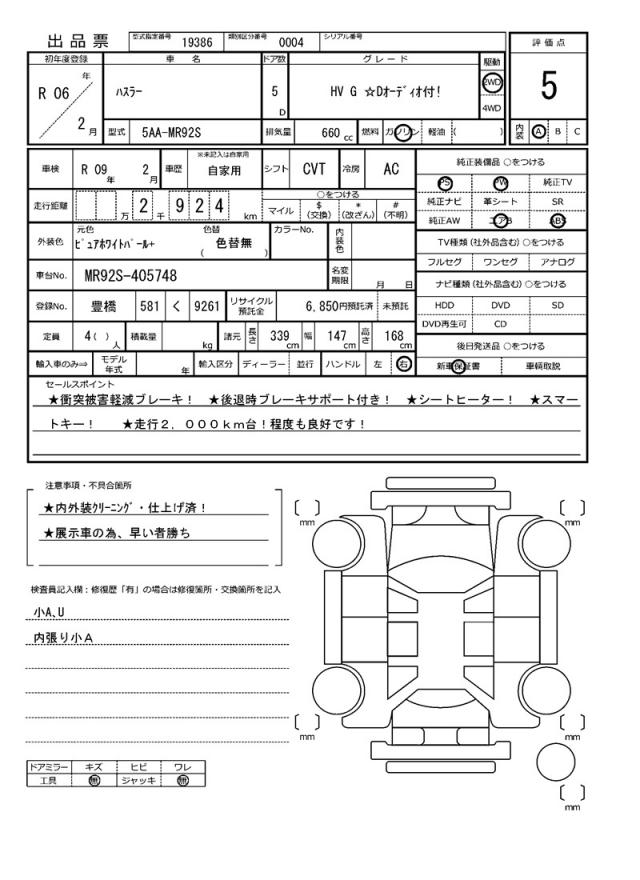 出品票 型式指定番号 19386 類別区分番号 0004 シリアル番号
評価点
初年度登録 車名 ドア数 グレード 駆動
R 06 年 2 月
ハスラー
5 D
HV G ☆Dオーディオ付!
2WD
4WD
5
型式 5AA-MR92S 排気量 660 cc 燃料 ガソリン 軽油 ( )
内装 A B C
車検 R 09 年 2 月 車歴 ※未記入は自家用 自家用 シフト CVT 冷房 AC
純正装備品 ○をつける
PS PW 純正TV
純正ナビ 革シート SR
純正AW エアB ABS
走行距離 万 2 千 9 2 4 km
○をつける
マイル $ (交換) * (改ざん) # (不明)
TV種類 (社外品含む) ○をつける
フルセグ ワンセグ アナログ
外装色 元色 ピュアホワイトパール+ 色替 ( 色替無 ) カラーNo. 内装色
車台No. MR92S-405748 名変期限 月 日
ナビ種類 (社外品含む) ○をつける
HDD DVD SD
DVD再生可 CD
登録No. 豊橋 581 く 9261 リサイクル預託金 6,850円預託済 未預託
定員 4( ) 人 積載量 kg 諸元 長さ 339 cm 幅 147 cm 高さ 168 cm
後日発送品 ○をつける
新車保証書 車輌取説
輸入車のみ⇒ モデル年式 年 輸入区分 ディーラー 並行 ハンドル 左 右
セールスポイント
★衝突被害軽減ブレーキ! ★後退時ブレーキサポート付き! ★シートヒーター! ★スマー
トキー! ★走行2,000km台!程度も良好です!
注意事項・不具合箇所
★内外装クリーニング・仕上げ済!
★展示車の為、早い者勝ち
検査員記入欄:修復歴「有」の場合は修復箇所・交換箇所を記入
小A,U
内張り小A
[ ] mm
[ ] mm
[ ] mm
[ ] mm
[ ] mm
ドアミラー キズ ヒビ ワレ
工具 無 ジャッキ 無